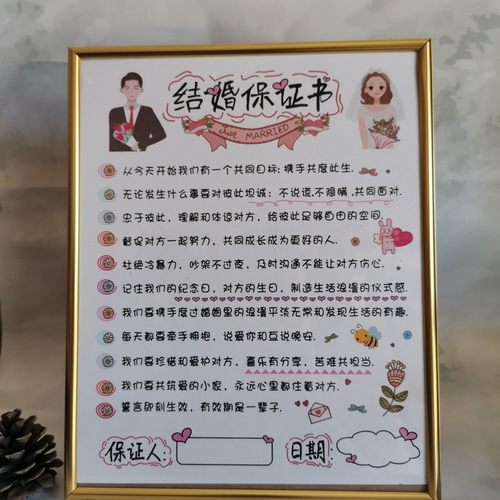 结婚保证书
Just MARRIED
从今天开始我们有一个共同目标:携手共度此生.
无论发生什么事要对彼此坦诚:不说谎.不隐瞒.共同面对.
忠于彼此，理解和体谅对方，给彼此足够自由的空间.
督促对方一起努力，共同成长成为更好的人.
杜绝冷暴力，吵架不过夜，及时沟通不能让对方伤心.
记住我们的纪念日，对方的生日，制造生活浪漫的仪式感.
我们要携手度过婚姻里的浪漫平淡无常和发现生活的有趣.
每天都要牵手拥抱，说爱你和互说晚安.
我们要珍惜和爱护对方，喜乐有分享，苦难共担当.
我们要共筑爱的小家，永远心里都住着对方.
誓言即刻生效，有效期是一辈子.
保证人:
日期: